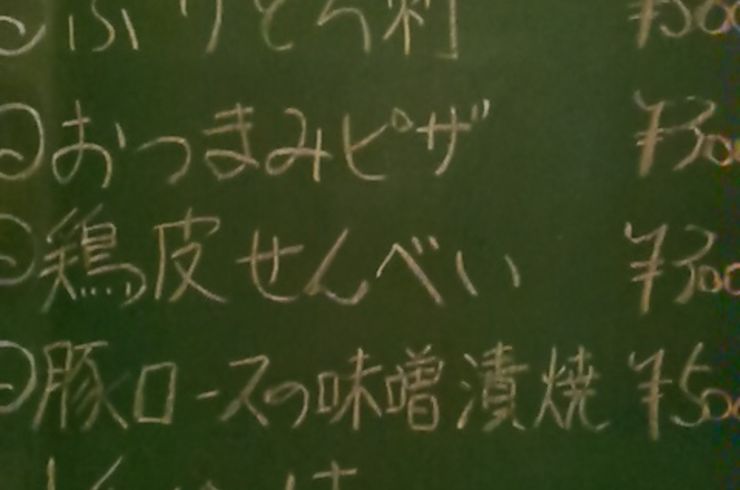 ぶりとろ刺 ¥300
おつまみピザ ¥300
鶏皮せんべい ¥300
豚ロースの味噌漬焼 ¥500